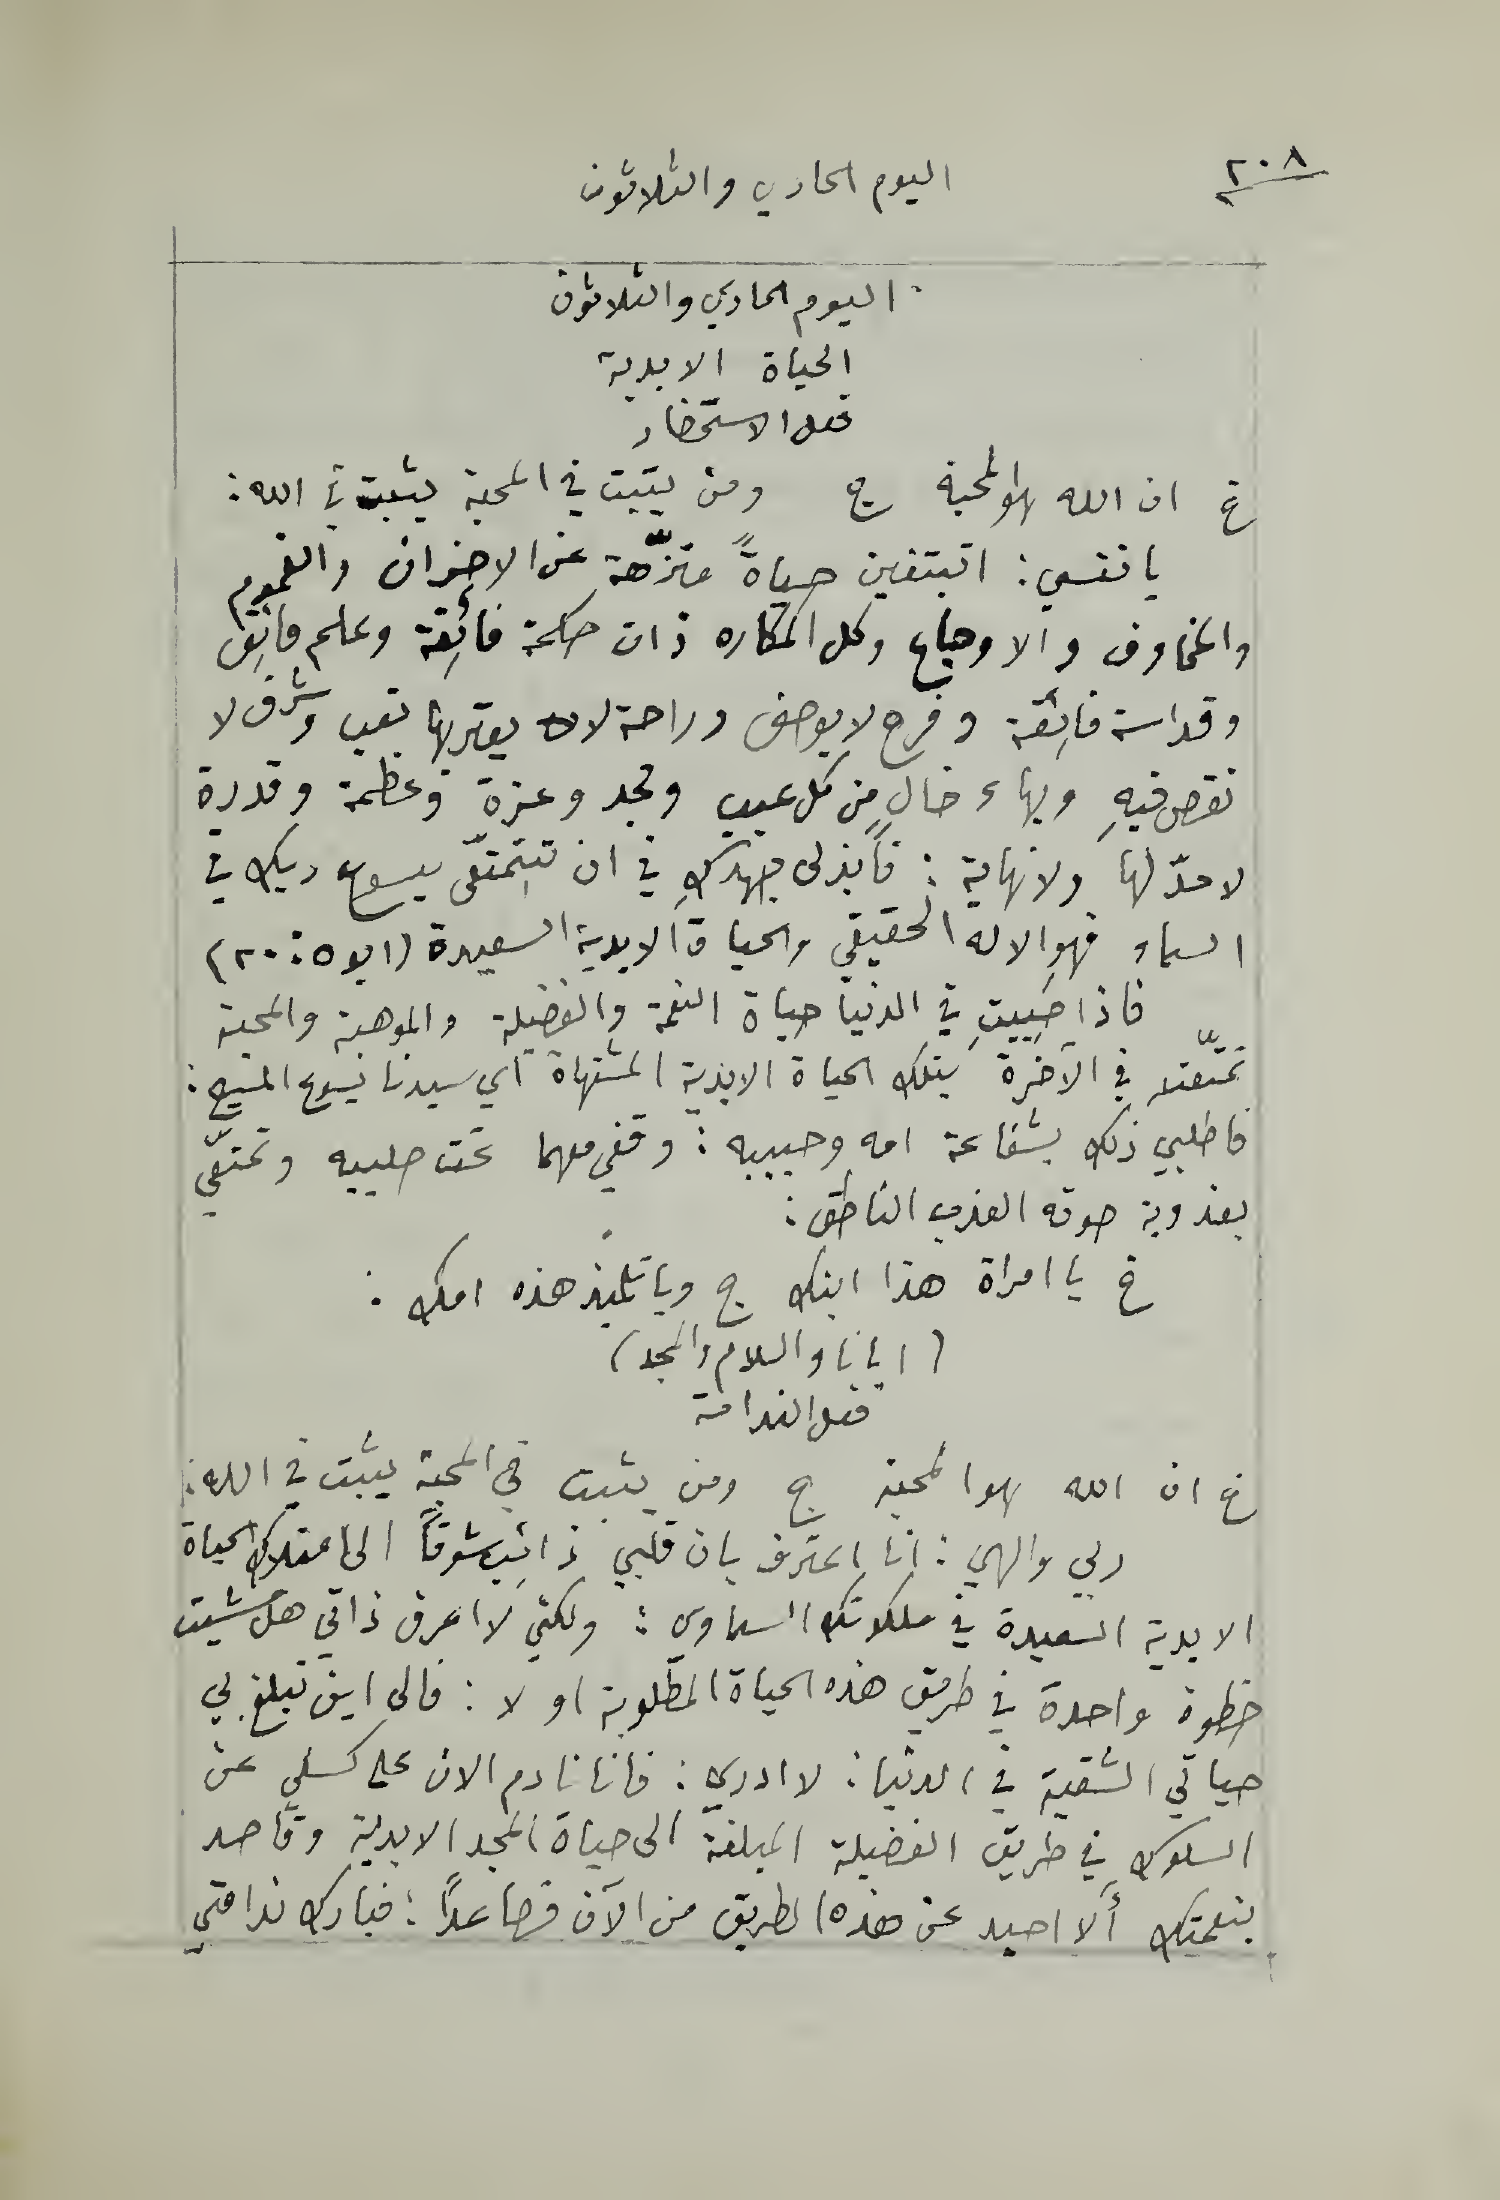 ٢٠٨
اليوم الحادي والثلاثون
اليوم الحادي والثلاثون
الحياة الابدية
فعل الاستحضار
خ ان الله هو المحبة ج ومن يثبت في المحبة يثبت في الله:
يا نفسي: اتبتغين حياةً منزّهة عن الاحزان والغموم
والمخاوف والاوجاع وكل المكاره ذات حكمة فائِقة وعلم فائِق
وقداسة فائِقة وفرح لا يوصف وراحة لا يعتريها تعب وشرف لا
نقص فيهِ وبهاء خالٍ من كل عيب ومجد وعزة وعظمة وقدرة
لا حدّ لها ولا نهاية: فابذلي جهدكِ في ان تتمتعّي بيسوع ربك في
السماء فهو الاله الحقيقي والحياة الابدية السعيدة (ايو ٥: ٢٠)
فاذا حييتِ في الدنيا حياة النعمة والفضيلة والموهبة والمحبة
تمتّعتِ في الآخرة بتلك الحياة الابدية المشتهاة اي سيدنا يسوع المسيح:
فاطلبي ذلك بشفاعة امه وحبيبه: وقفي معهما تحت صليبه وتمتعّي
بعذوبة صوته العذب الناطق:
خ يا امراة هذا ابنك ج ويا تلميذ هذه امك:
(ابانا والسلام والمجد)
فعل الندامة
خ ان الله هو المحبة ج ومن يثبت في المحبة يثبت في الله:
ربي والهي: انا اعترف بان قلبي ذائِب شوقاً الى امتلاك الحياة
الابدية السعيدة في ملكوتك السماوي: ولكني لا اعرف ذاتي هل مشيت
خطوة واحدة في طريق هذه الحياة المطلوبة او لا: فالى اين تبلغ بي
حياتي الشقية في الدنيا: لا ادري: فانا نادم الان على كسلي عن
السلوك في طريق الفضيلة المبلغة الى حياة المجد الابدية وقاصد
بنعمتك ألا احيد عن هذه الطريق من الآن فصاعداً: فبارك ندامتي